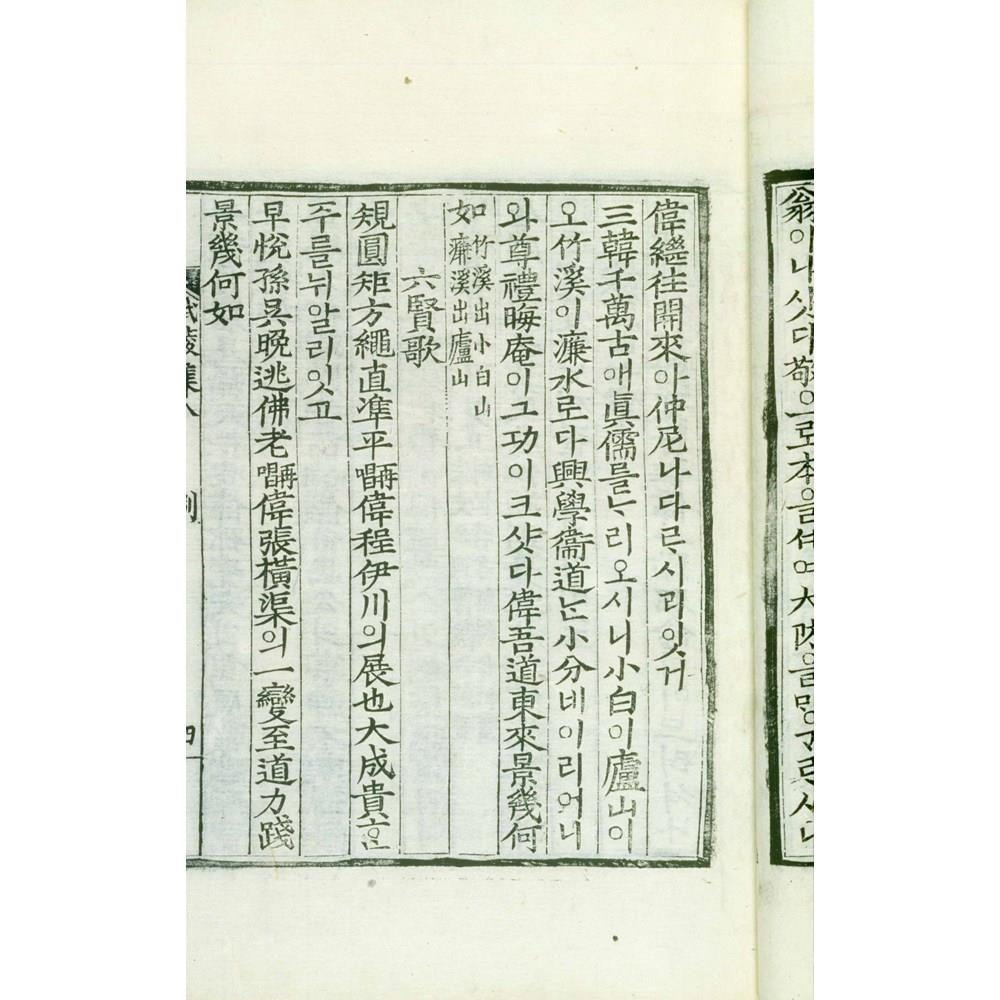 翁이나샷다敬으로本을셰여大防을ᄆᆡᇰᄀᆞᄅᆞ시니
偉繼往開來아仲尼나다ᄅᆞ시리잇거
三韓千萬古애眞儒를ᄂᆞ리오시니小白이廬山이
오竹溪이濂水로다興學衛道ᄂᆞᆫ小分네이리어니
와尊禮晦庵이그功이크샷다偉吾道東來景幾何
如竹溪出小白山
如濂溪出廬山
六賢歌
規圓矩方繩直準平再唱偉程伊川의展也大成貴ᄒᆞᆫ
주를뉘알리잇고
早悅孫吳晩逃佛老再唱偉張橫渠의一變至道力踐
景幾何如